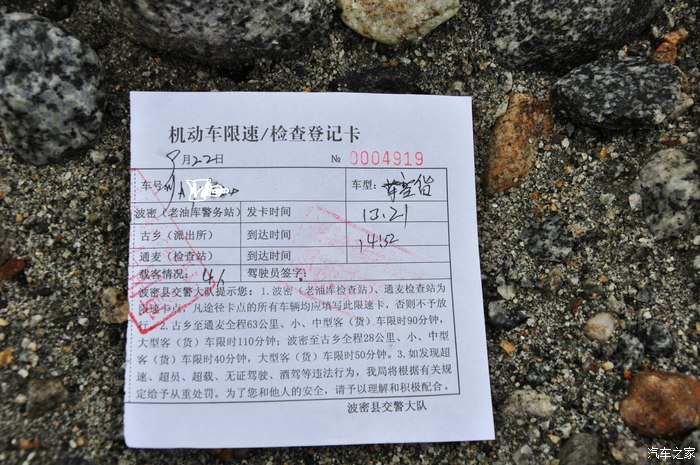 机动车限速/检查登记卡
9月22日 № 0004919
车号 车型:
波密（老油库警务站） 发卡时间 13.21
古乡（派出所） 到达时间 14:52
通麦（检查站） 到达时间
载客情况： 驾驶员签字：
波密县交警大队提示您：1.波密（老油库检查站）、通麦检查站为
限速卡点，凡途径卡点的所有车辆均应填写此限速卡，否则不予放
行。2.古乡至通麦全程63公里，小、中型客（货）车限时90分钟，
大型客（货）车限时110分钟；波密至古乡全程28公里，小、中型
客（货）车限时40分钟，大型客（货）车限时50分钟。3.如发现超
速、超员、超载、无证驾驶、酒驾等违法行为，我局将根据有关规
定给予从重处罚。为了您和他人的安全，请予以理解和积极配合。
波密县交警大队
汽车之家